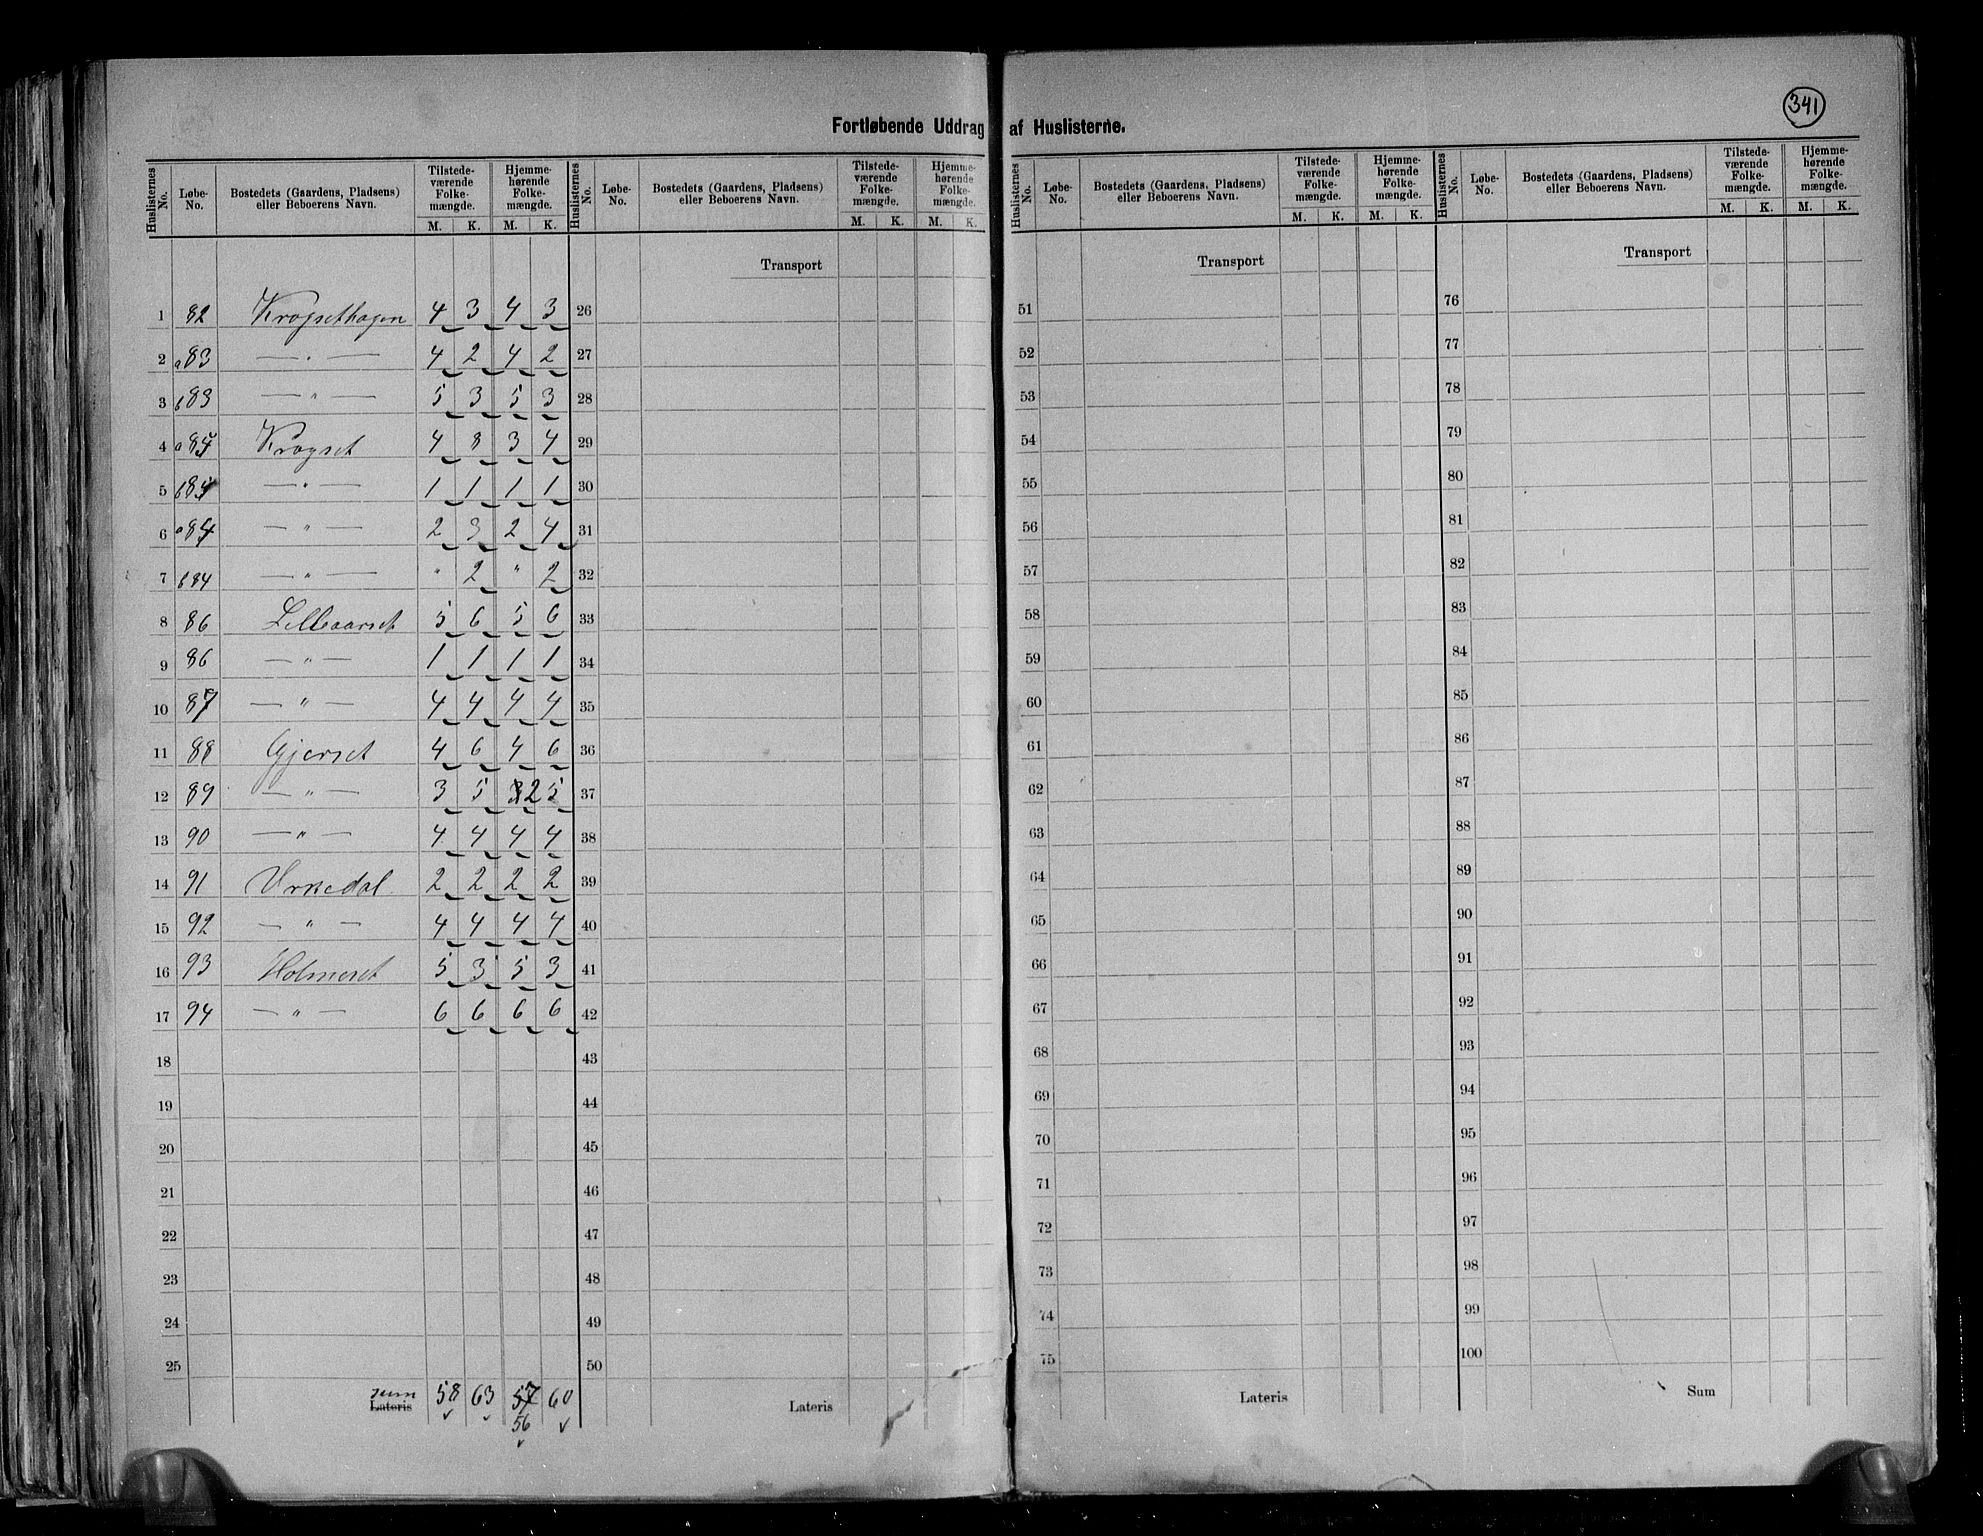 341
Fortløbende Uddrag af Huslisterne.
Huslisternes No. Løbe-No. Bostedets (Gaardens, Pladsens) eller Beboerens Navn. Tilstede-værende Folke-mængde. M. K. Hjemme-hørende Folke-mængde. M. K.
Huslisternes No. Løbe-No. Bostedets (Gaardens, Pladsens) eller Beboerens Navn. Tilstede-værende Folke-mængde. M. K. Hjemme-hørende Folke-mængde. M. K.
Huslisternes No. Løbe-No. Bostedets (Gaardens, Pladsens) eller Beboerens Navn. Tilstede-værende Folke-mængde. M. K. Hjemme-hørende Folke-mængde. M. K.
Huslisternes No. Løbe-No. Bostedets (Gaardens, Pladsens) eller Beboerens Navn. Tilstede-værende Folke-mængde. M. K. Hjemme-hørende Folke-mængde. M. K.
Transport Transport Transport
1 82 Krogsethagen 4 3 4 3 26 51 76
2 a83 — " — 4 2 4 2 27 52 77
3 b83 — " — 5 3 5 3 28 53 78
4 a84 Krogset 4 8 3 4 29 54 79
5 b84 — " — 1 1 1 1 30 55 80
6 a84 — " — 2 3 2 4 31 56 81
7 b84 — " — " 2 " 2 32 57 82
8 86 Lillaarset 5 6 5 6 33 58 83
9 86 — " — 1 1 1 1 34 59 84
10 87 — " — 4 4 4 4 35 60 85
11 88 Gjerset 4 6 4 6 36 61 86
12 89 — " — 3 5 3 2 5 37 62 87
13 90 — " — 4 4 4 4 38 63 88
14 91 Urkedal 2 2 2 2 39 64 89
15 92 — " — 4 4 4 4 40 65 90
16 93 Holmeset 5 3 5 3 41 66 91
17 94 — " — 6 6 6 6 42 67 92
18 43 68 93
19 44 69 94
20 45 70 95
21 46 71 96
22 47 72 97
23 48 73 98
24 49 74 99
25 50 75 100
sum Lateris 58 63 57 60 Lateris Lateris Sum
56